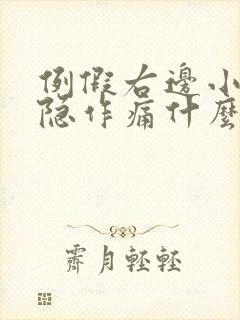 例假右邊小
隐作痛什麼
霽月輕輕